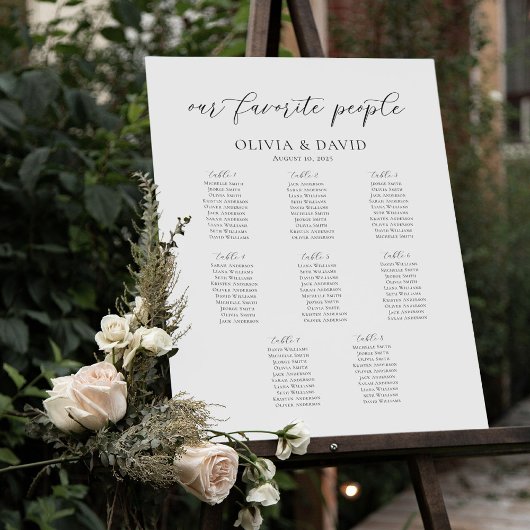 our favorite people
OLIVIA & DAVID
AUGUST 10, 2025
table 1
MICHELLE SMITH
JEORGE SMITH
OLIVIA SMITH
KRISTEN ANDERSON
OLIVER ANDERSON
JACK ANDERSON
SARAH ANDERSON
LIANA WILLIAMS
SETH WILLIAMS
DAVID WILLIAMS
table 2
JACK ANDERSON
SARAH ANDERSON
LIANA WILLIAMS
SETH WILLIAMS
DAVID WILLIAMS
MICHELLE SMITH
JEORGE SMITH
OLIVIA SMITH
KRISTEN ANDERSON
OLIVER ANDERSON
table 3
JEORGE SMITH
OLIVIA SMITH
JACK ANDERSON
SARAH ANDERSON
LIANA WILLIAMS
SETH WILLIAMS
KRISTEN ANDERSON
DAVID WILLIAMS
MICHELLE SMITH
OLIVER ANDERSON
table 4
SARAH ANDERSON
LIANA WILLIAMS
SETH WILLIAMS
KRISTEN ANDERSON
OLIVER ANDERSON
DAVID WILLIAMS
MICHELLE SMITH
JEORGE SMITH
OLIVIA SMITH
JACK ANDERSON
table 5
LIANA WILLIAMS
SETH WILLIAMS
DAVID WILLIAMS
JACK ANDERSON
SARAH ANDERSON
MICHELLE SMITH
JEORGE SMITH
OLIVIA SMITH
KRISTEN ANDERSON
OLIVER ANDERSON
table 6
DAVID WILLIAMS
MICHELLE SMITH
JEORGE SMITH
OLIVIA SMITH
LIANA WILLIAMS
SETH WILLIAMS
KRISTEN ANDERSON
OLIVER ANDERSON
SARAH ANDERSON
JACK ANDERSON
table 7
DAVID WILLIAMS
MICHELLE SMITH
JEORGE SMITH
OLIVIA SMITH
JACK ANDERSON
SARAH ANDERSON
LIANA WILLIAMS
SETH WILLIAMS
KRISTEN ANDERSON
OLIVER ANDERSON
table 8
MICHELLE SMITH
JEORGE SMITH
OLIVIA SMITH
KRISTEN ANDERSON
OLIVER ANDERSON
JACK ANDERSON
SARAH ANDERSON
LIANA WILLIAMS
SETH WILLIAMS
DAVID WILLIAMS